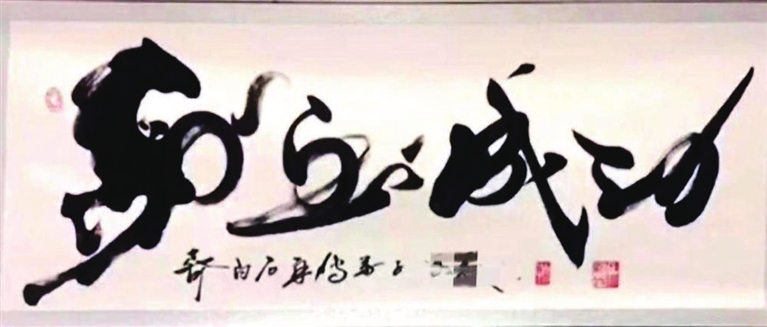 马到成功
齐白石再传弟子